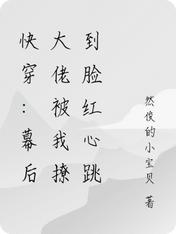 快穿：幕后
大佬被我撩
到脸红心跳
然俊的小宝贝 著